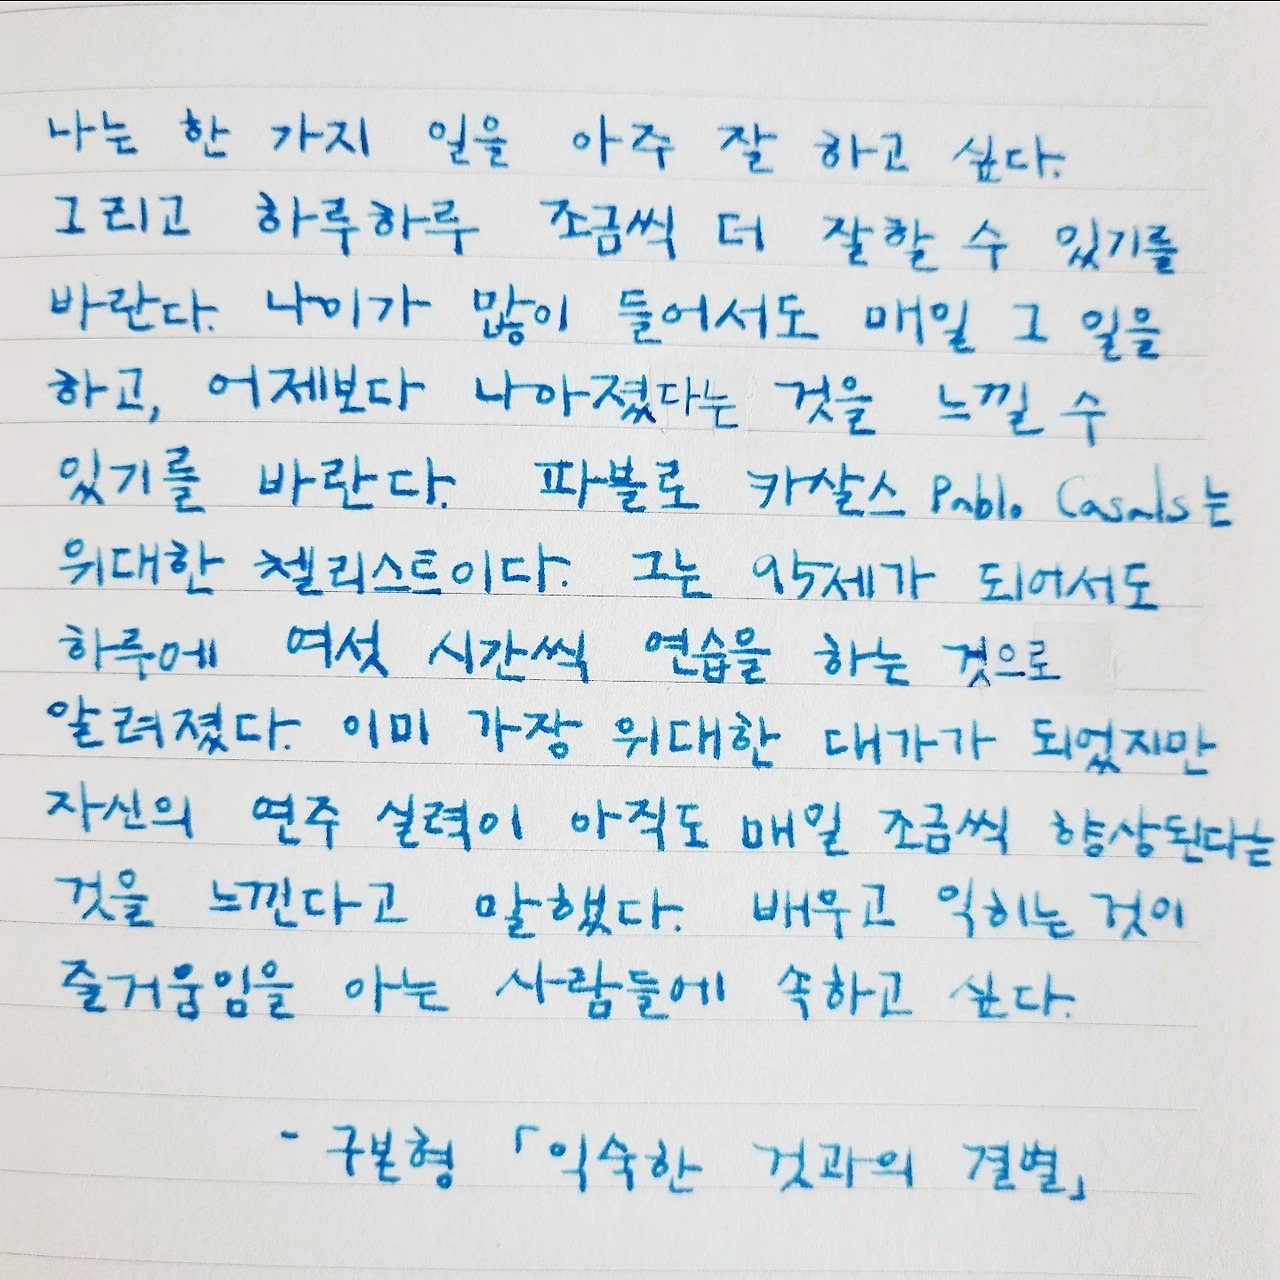 나는 한 가지 일을 아주 잘 하고 싶다.
그리고 하루하루 조금씩 더 잘할 수 있기를
바란다. 나이가 많이 들어서도 매일 그 일을
하고, 어제보다 나아졌다는 것을 느낄 수
있기를 바란다. 파블로 카살스 Pablo Casals는
위대한 첼리스트이다. 그는 95세가 되어서도
하루에 여섯 시간씩 연습을 하는 것으로
알려졌다. 이미 가장 위대한 대가가 되었지만
자신의 연주 실력이 아직도 매일 조금씩 향상된다는
것을 느낀다고 말했다. 배우고 익히는 것이
즐거움임을 아는 사람들에 속하고 싶다.
- 구본형 「익숙한 것과의 결별」